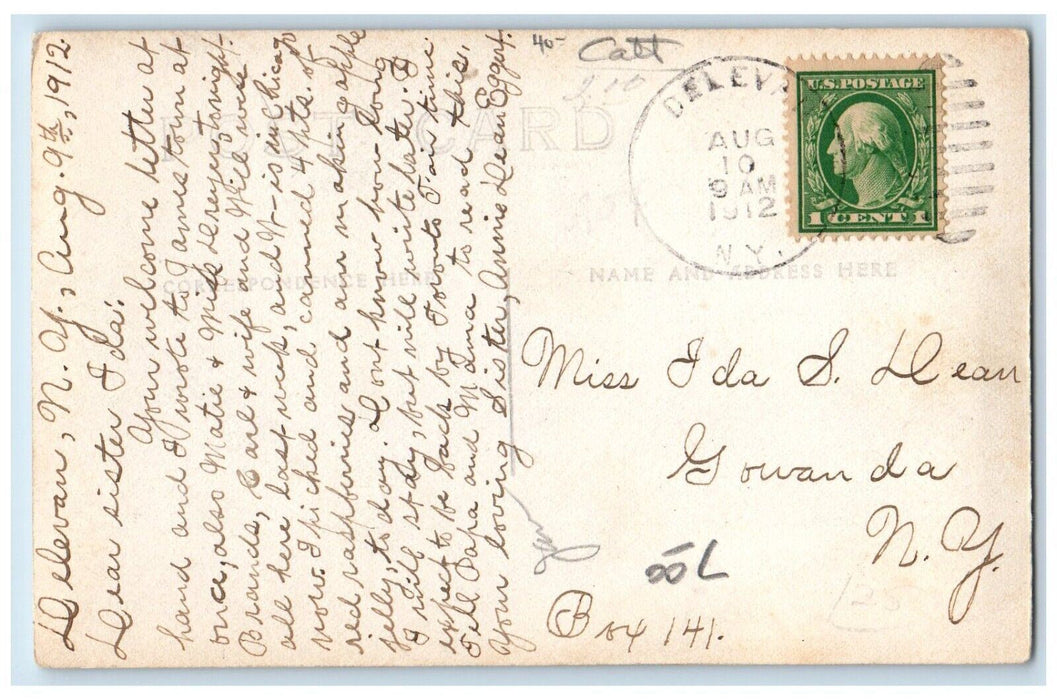 Delevan, N. Y., Aug. 9th, 1912.
Dear sister Ida:
Your welcome letter at
hand and I wrote to Jamestown at
once, also Matie & Mick were here tonight.
Brands, Earl & wife and Will were
all here last week, and W— is in Chicago
now. I picked and canned 4 pts. of
red raspberries and am makin' apple
jelly to day. Dont know how long
I will stay, but will write later. I
expect to be back by Toronto Fair time.
Tell Papa and Mama to read this,
Your loving Sister, Annis Dean Eggert.
POST CARD
CORRESPONDENCE HERE
NAME AND ADDRESS HERE
40-
Catt
DELEVAN
AUG
10
9 AM
1912
N.Y.
U.S. POSTAGE
1 CENT 1
Miss Ida S. Dean
Gowanda
N. Y.
Box 141.
25